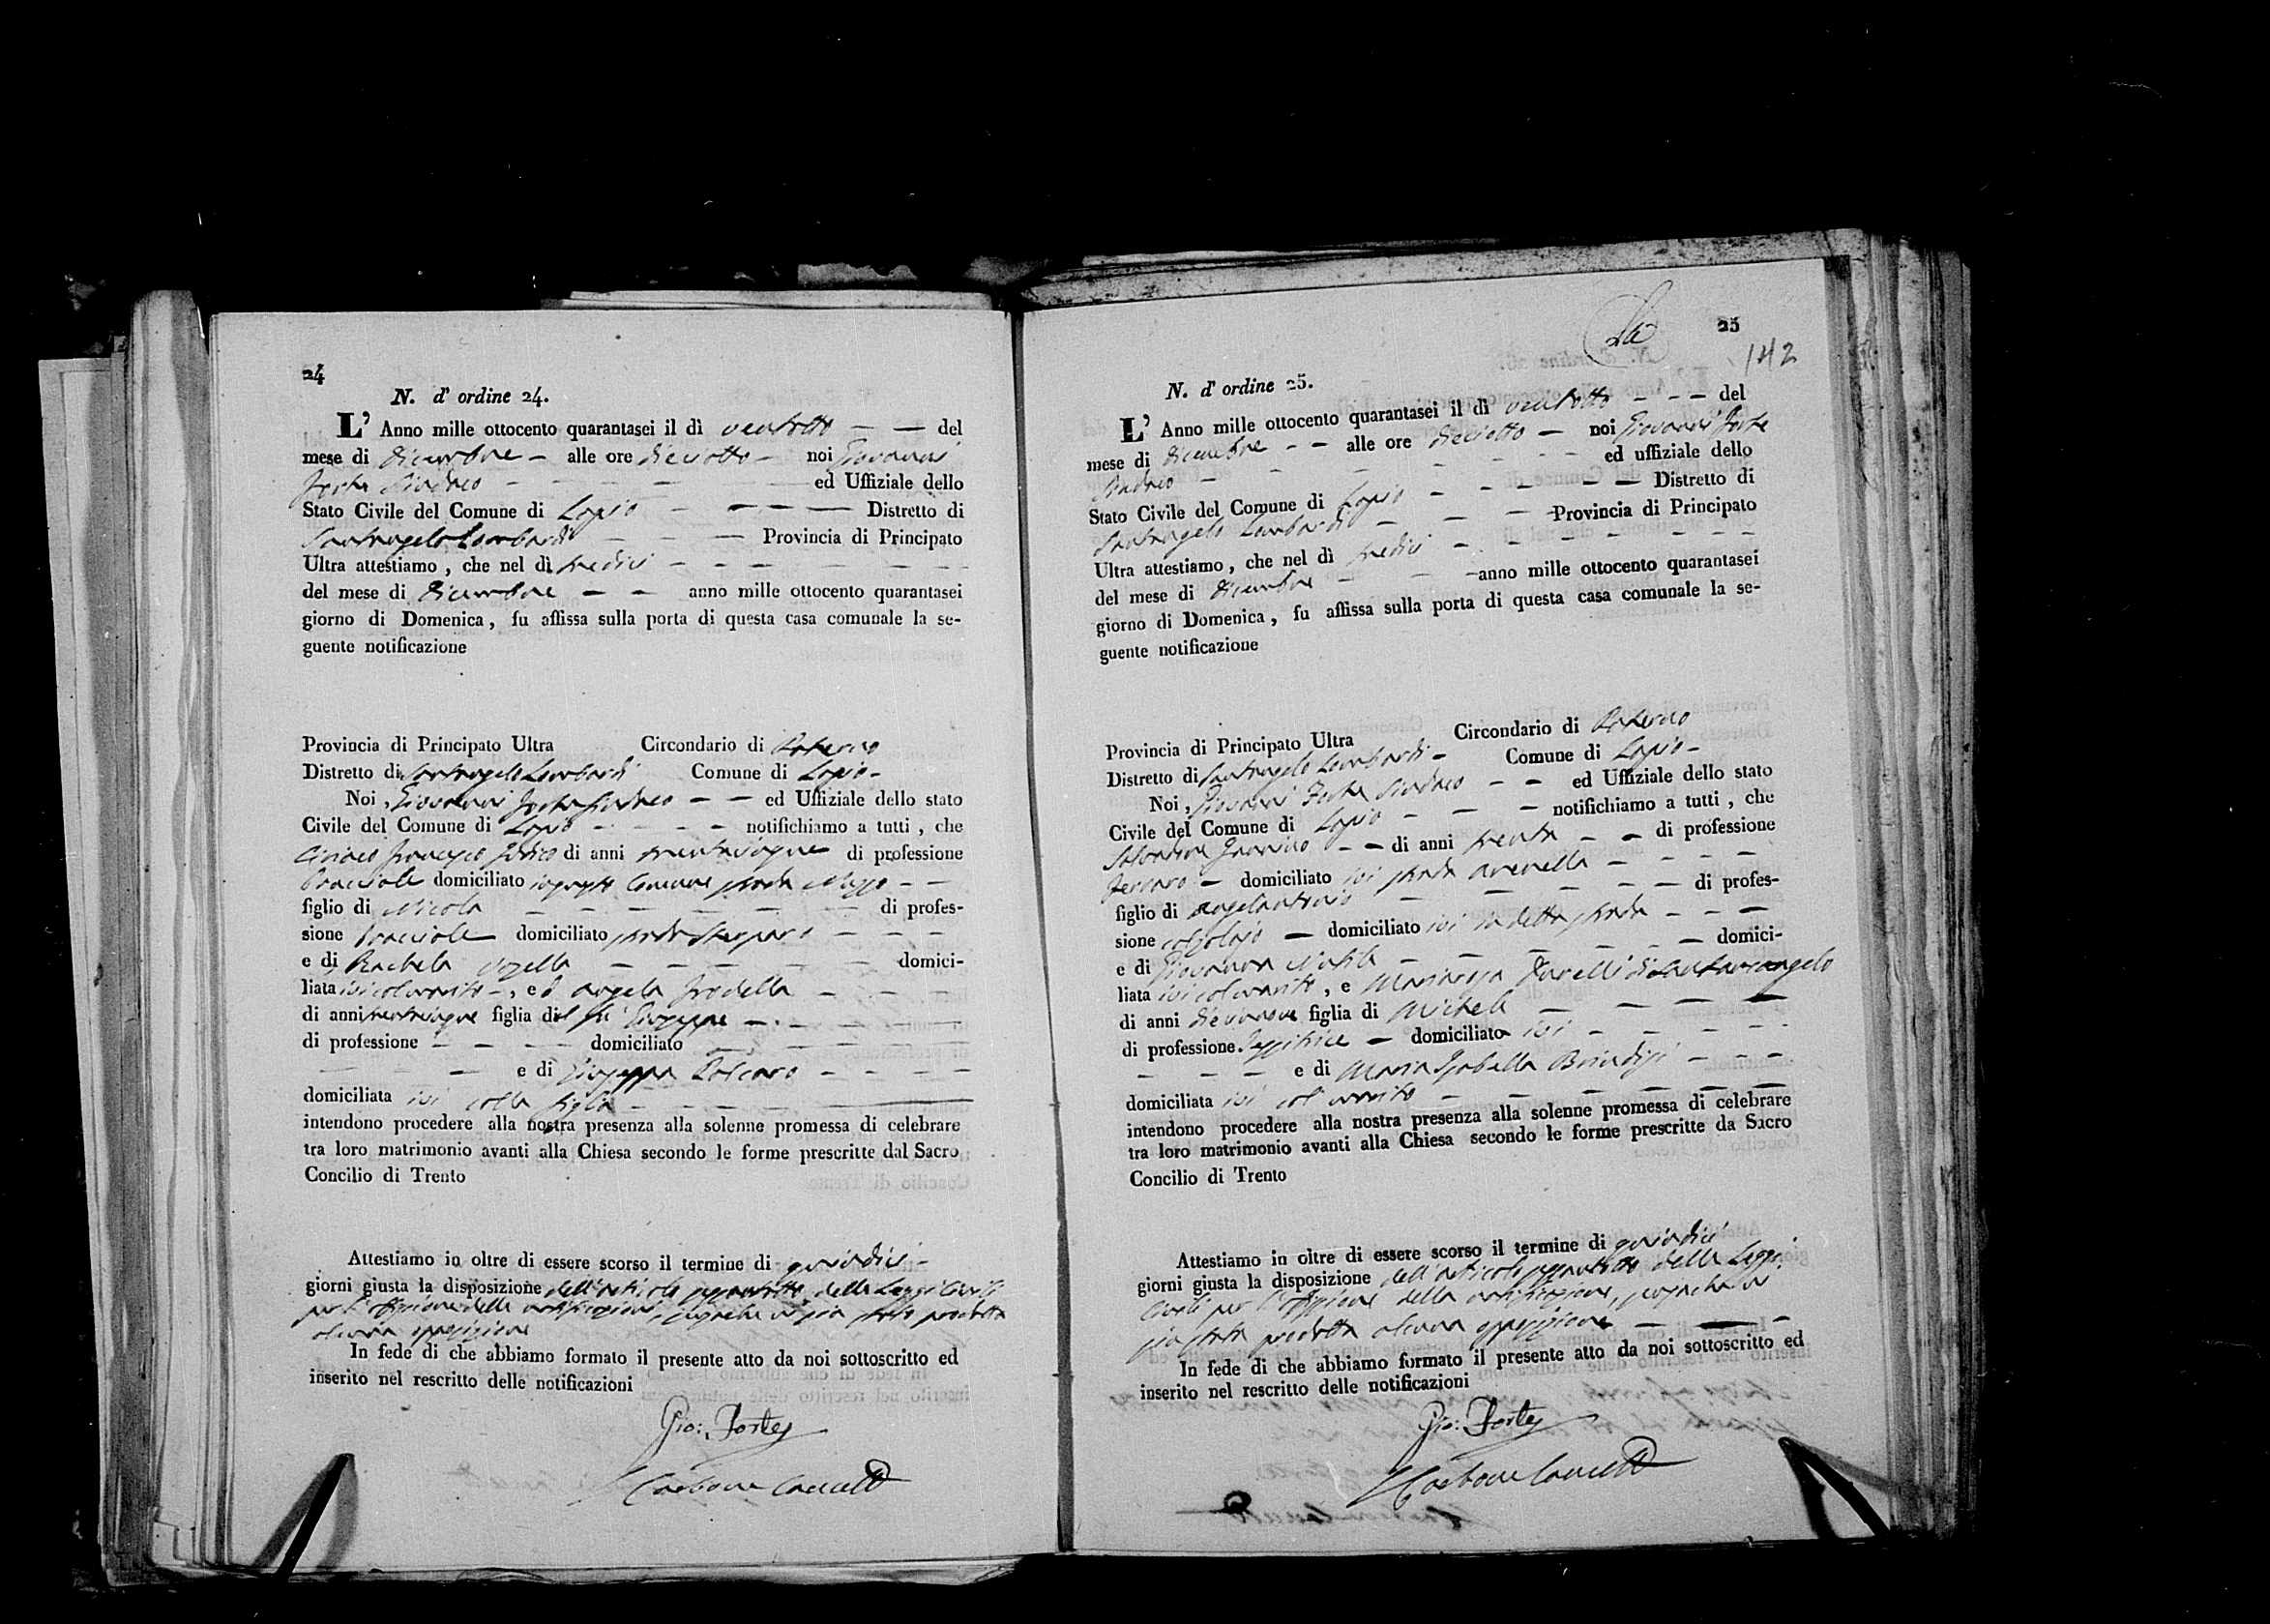 24
N. d' ordine 24.
L' Anno mille ottocento quarantasei il dì ventotto — — del
mese di Dicembre — alle ore dieciotto — noi Giovanni
Forte Sindaco — — — — ed Uffiziale dello
Stato Civile del Comune di Lapio — — — — Distretto di
Santangelo Lombardi — — — Provincia di Principato
Ultra attestiamo , che nel dì tredici — — — — — —
del mese di Dicembre — — anno mille ottocento quarantasei
giorno di Domenica , fu affissa sulla porta di questa casa comunale la se-
guente notificazione
Provincia di Principato Ultra Circondario di Paterno
Distretto di Santangelo Lombardi Comune di Lapio —
Noi , Giovanni Forte Sindaco — — ed Uffiziale dello stato
Civile del Comune di Lapio — — — — notifichiamo a tutti , che
Ciriaco Francesco di anni trentacinque di professione
bracciale domiciliato Comune strada — —
figlio di Nicola — — — — — — di profes-
sione bracciale domiciliato strada — — —
e di Rachela — — — — — — domici-
liata ivi col marito —, e D. Angela — — —
di anni trentacinque figlia del fu Giuseppe — — — —
di professione — — — domiciliato — — — — —
— — — e di Giuseppa — — — —
domiciliata ivi colla figlia — — — — —
intendono procedere alla nostra presenza alla solenne promessa di celebrare
tra loro matrimonio avanti alla Chiesa secondo le forme prescritte dal Sacro
Concilio di Trento
Attestiamo in oltre di essere scorso il termine di quindici —
giorni giusta la disposizione dell'articolo settantotto delle Leggi Civili
per l'affissione delle notificazioni, senza che vi sia stata prodotta
alcuna opposizione
In fede di che abbiamo formato il presente atto da noi sottoscritto ed
inserito nel rescritto delle notificazioni
Gio: Forte
Carbone Cancell
25
142
N. d' ordine 25.
L' Anno mille ottocento quarantasei il dì ventotto — — — del
mese di Dicembre — — alle ore dieciotto — noi Giovanni Forte
Sindaco — — — — — — — ed uffiziale dello
Stato Civile del Comune di Lapio — — — — — Distretto di
Santangelo Lombardi — — — — Provincia di Principato
Ultra attestiamo , che nel dì tredici — — — — — — —
del mese di Dicembre — — — anno mille ottocento quarantasei
giorno di Domenica , fu affissa sulla porta di questa casa comunale la se-
guente notificazione
Provincia di Principato Ultra Circondario di Paterno
Distretto di Santangelo Lombardi — Comune di Lapio —
Noi , Giovanni Forte Sindaco — — ed Uffiziale dello stato
Civile del Comune di Lapio — — — notifichiamo a tutti , che
Salvatore — — di anni trenta — — di professione
Ferraro — domiciliato ivi strada Arenella — — — —
figlio di Angelantonio — — — — — di profes-
sione — domiciliato ivi in detta strada — — —
e di Giovanna — — — — — — domici-
liata ivi col marito , e Mariarosa di Santarcangelo
di anni diecinove figlia di Michele — — — —
di professione Tessitrice — domiciliato ivi — — — — —
— — — e di Maria Isabella Brindisi — — —
domiciliata ivi col marito — — — — — —
intendono procedere alla nostra presenza alla solenne promessa di celebrare
tra loro matrimonio avanti alla Chiesa secondo le forme prescritte da Sacro
Concilio di Trento
Attestiamo in oltre di essere scorso il termine di quindici
giorni giusta la disposizione dell'articolo settantotto delle Leggi
Civili per l'affissione della notificazione, senza che vi
sia stata prodotta alcuna opposizione — — —
In fede di che abbiamo formato il presente atto da noi sottoscritto ed
inserito nel rescritto delle notificazioni
Gio: Forte
Carbone Cancell